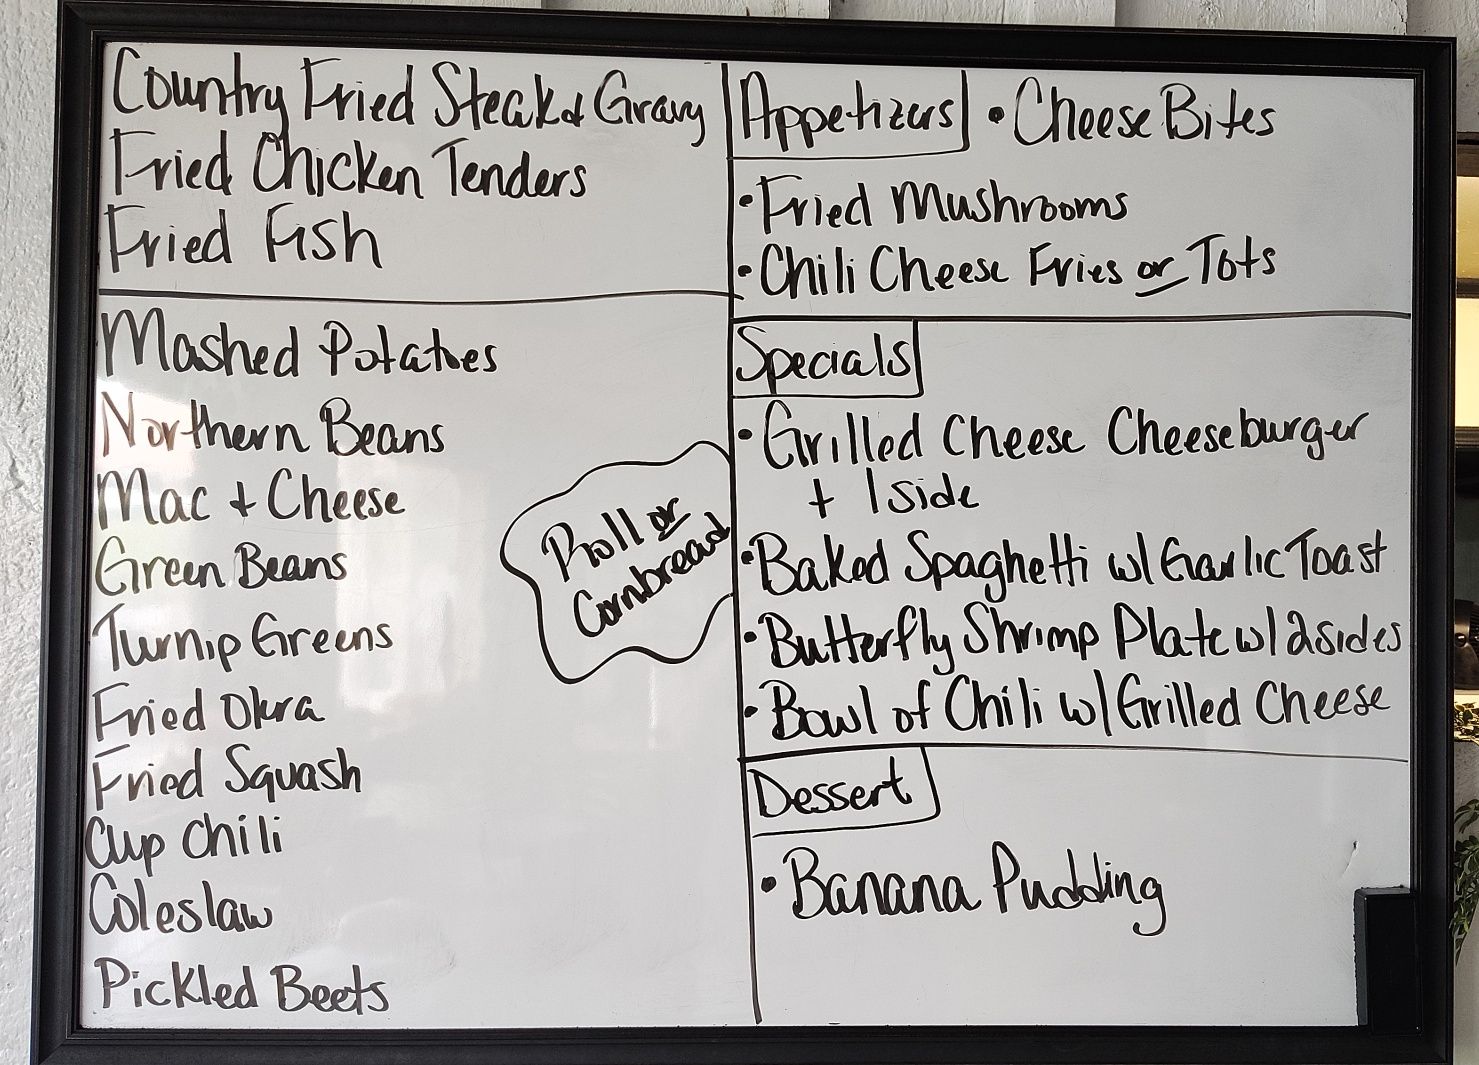 Country Fried Steak & Gravy
Fried Chicken Tenders
Fried Fish
Mashed Potatoes
Northern Beans
Mac + Cheese
Green Beans
Turnip Greens
Fried Okra
Fried Squash
Cup Chili
Coleslaw
Pickled Beets
Roll or
Cornbread
Appetizers • Cheese Bites
• Fried Mushrooms
• Chili Cheese Fries or Tots
Specials
• Grilled Cheese Cheeseburger
+ 1 side
• Baked Spaghetti w/ Garlic Toast
• Butterfly Shrimp Plate w/ 2 sides
• Bowl of Chili w/ Grilled Cheese
Dessert
• Banana Pudding